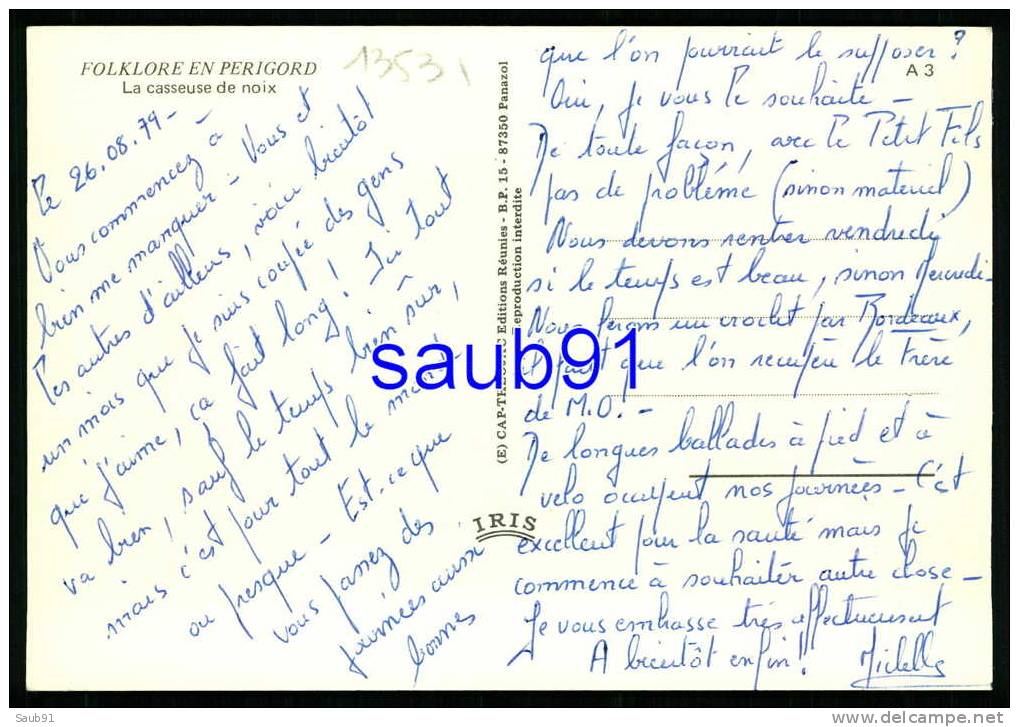 FOLKLORE EN PERIGORD
La casseuse de noix
1353
Le 26.08.79 -
Vous commencez à
bien me manquer - Vous et
les autres d'ailleurs, voici bientôt
un mois que je suis coupée des gens
que j'aime, ça fait long! Ici tout
va bien, sauf le temps bien sûr,
mais c'est pour tout le monde
ou presque - Est-ce que
vous passez des
journées aussi
bonnes
(E) CAP-THEOJAC Editions Réunies - B.P. 15 - 87350 Panazol
Reproduction interdite
IRIS
A 3
que l'on pourrait le supposer?
Oui, je vous le souhaite -
De toute façon, avec le Petit Fils
pas de problème (sinon materiel)
Nous devons rentrer vendredi
si le temps est beau, sinon Mercredi -
Nous ferons un crochet par Bordeaux,
il faut que l'on recupère le frère
de M.O. -
De longues ballades à pied et à
velo occupent nos journées - C'est
excellent pour la santé mais je
commence à souhaiter autre chose -
Je vous embrasse très affectueusement
A bientôt enfin! Michelle
saub91
Saub91
www.delcampe.net